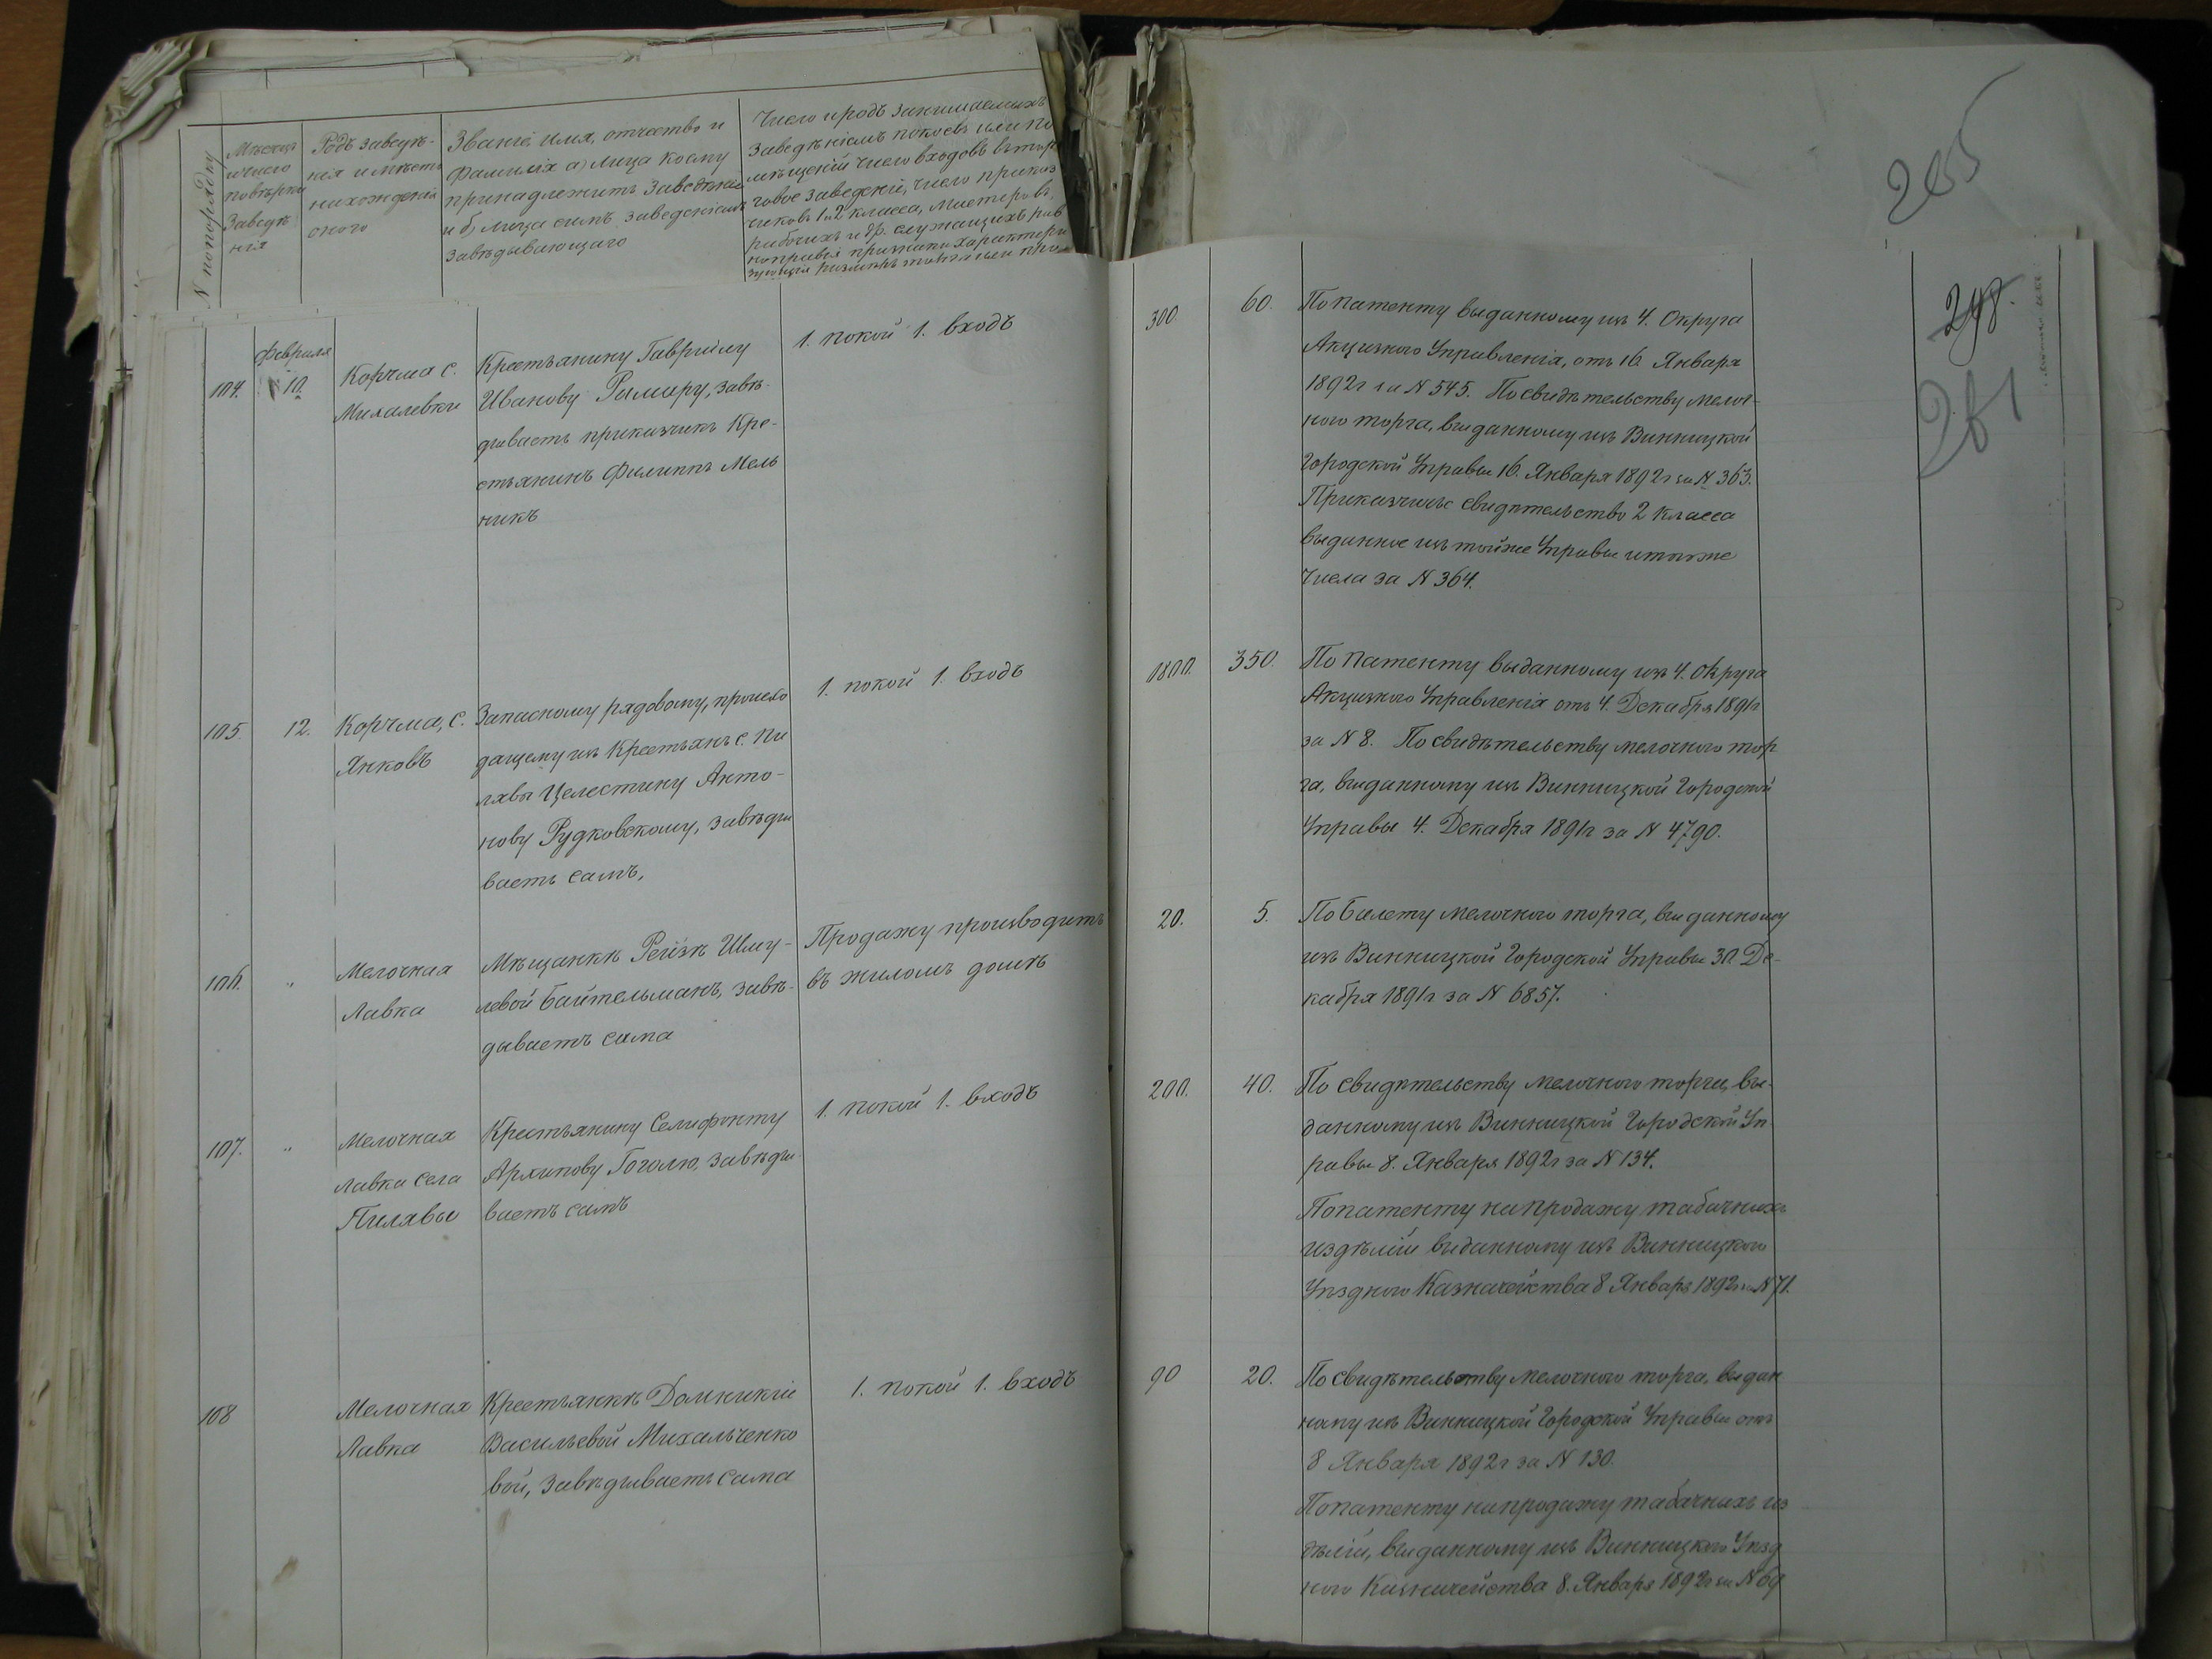 N по порядку
Мѣсяцъ
и число
повѣрки
Заведе
нія
Родъ заведе-
нія и мѣсто
нахожденія
оного
Званіе, имя, отчество и
фамилія а) лица коему
принадлежитъ заведеніе
и б) лица симъ заведеніемъ
завѣдывающаго
Число и родъ занимаемыхъ
заведѣніемъ покоевъ или по
мѣщеній число входовъ въ тор
говое заведеніе, число приказ
чиковъ 1 и 2 класса, мастеровъ,
рабочихъ и др. служащихъ рав
265
298.
261
104.
Февраля
10.
Корчма с.
Михалевки
Крестьянину Гаврiилу
Иванову Рымару, завѣ-
дываетъ приказчикъ Кре-
стьянинъ Филиппъ Мель
никъ
1. покой 1. входъ
300
60.
По патенту выданному изъ 4. Округа
Акцизнаго Управленія, отъ 16 Января
1892 г за N 545. По свидѣтельству мелоч-
ного торга, выданному изъ Винницкой
Городской Управы 16. Января 1892 г за N 363.
Приказчичье свидѣтельство 2 класса
выданное изъ тойже Управы и тогоже
числа за N 364.
105.
12.
Корчма, с.
Янковъ
Запасному рядовому, происхо
дящему изъ Крестьянъ с. Пи
лявы Целестину Анто-
нову Рудковскому, завѣды
ваетъ самъ,
1. покой 1. входъ
1800.
350.
По патенту выданному изъ 4. Округа
Акцизнаго Управленія отъ 4. Декабря 1891 г
за N 8. По свидѣтельству мелочного тор
га, выданному изъ Винницкой Городской
Управы 4. Декабря 1891 г за N 4790.
106.
"
Мелочная
Лавка
Мѣщанкѣ Рейзѣ Шму-
левой Байтельманъ, завѣ-
дываетъ сама
Продажу производитъ
въ жиломъ домѣ
20.
5.
По билету мелочного торга, выданному
изъ Винницкой Городской Управы 30. Де-
кабря 1891 г за N 6857.
107.
"
Мелочная
лавка села
Пилявы
Крестьянину Селифонту
Архипову Гоголю, завѣды
ваетъ самъ
1. покой 1. входъ
200.
40.
По свидѣтельству мелочного торга, вы-
данному изъ Винницкой Городской Уп
равы 8. Января 1892 г за N 134.
По патенту на продажу табачныхъ
издѣлій выданному изъ Винницкого
Уѣздного Казначейства 8 Января 1892 г за N 71.
108
Мелочная
Лавка
Крестьянкѣ Домникіи
Васильевой Михальченко
вой, завѣдываетъ сама
1. покой 1. входъ
90
20.
По свидѣтельству мелочного торга, выдан
ному изъ Винницкой Городской Управы отъ
8 Января 1892 г за N 130.
По патенту на продажу табачныхъ из
дѣлій, выданному изъ Винницкого Уѣзд
ного Казначейства 8. Января 1892 г за N 69